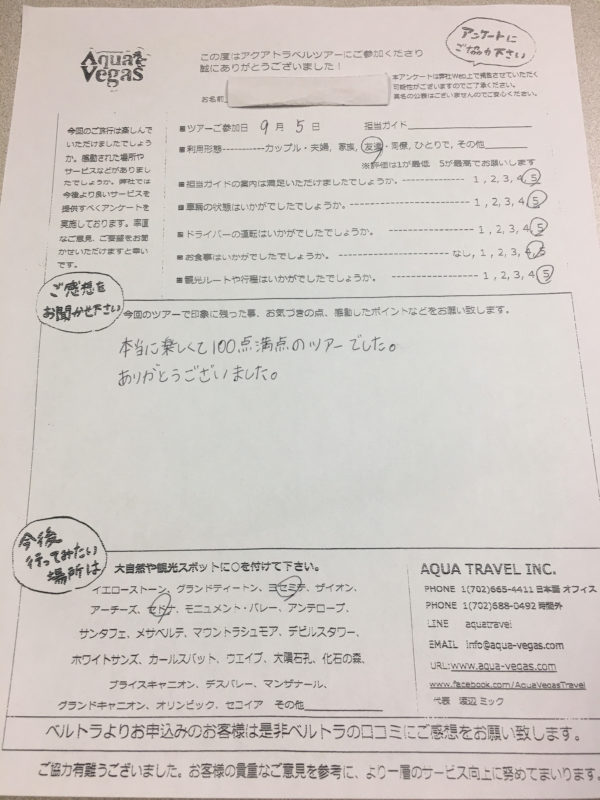 Aqua
Vegas
この度はアクアトラベルツアーにご参加くださり
誠にありがとうございました！
アンケートに
ご協力下さい
本アンケートは弊社Web上で掲載させていただく
可能性がございますのでご了承ください。
実名の公表はございませんのでご安心ください。
お名前
今回のご旅行は楽しんで
いただけましたでしょう
か。感動された場所や
サービスなどがありまし
たでしょうか。弊社では
今後より良いサービスを
提供すべくアンケートを
実施しております。率直
なご意見、ご要望をお聞
かせいただけますと幸い
です。
■ツアーご参加日 9月 5日 担当ガイド
■利用形態-----------カップル・夫婦, 家族, 友達・同僚, ひとりで, その他
※評価は1が最低 5が最高でお願いします
■担当ガイドの案内は満足いただけましたでしょうか。-------------- 1, 2, 3, 4, 5
■車輌の状態はいかがでしたでしょうか。 1, 2, 3, 4, 5
■ドライバーの運転はいかがでしたでしょうか。 1, 2, 3, 4, 5
■お食事はいかがでしたでしょうか。 なし, 1, 2, 3, 4, 5
■観光ルートや行程はいかがでしたでしょうか。 1, 2, 3, 4, 5
ご感想を
お聞かせ下さい
今回のツアーで印象に残った事、お気づきの点、感動したポイントなどをお願い致します。
本当に楽しくて100点満点のツアーでした。
ありがとうございました。
今後
行ってみたい
場所は
大自然や観光スポットに○を付けて下さい。
イエローストーン、グランドティートン、ヨセミテ、ザイオン、
アーチーズ、セドナ、モニュメント・バレー、アンテロープ、
サンタフェ、メサベルデ、マウントラシュモア、デビルスタワー、
ホワイトサンズ、カールスバット、ウエイブ、大隕石孔、化石の森、
ブライスキャニオン、デスバレー、マンザナール、
グランドキャニオン、オリンピック、セコイア その他
AQUA TRAVEL INC.
PHONE 1(702)665-4411 日本語 オフィス
PHONE 1(702)688-0492 時間外
LINE aquatravel
EMAIL info@aqua-vegas.com
URL:www.aqua-vegas.com
www.facebook.com/AquaVegasTravel
代表 渡辺 ミック
ベルトラよりお申込みのお客様は是非ベルトラの口コミにご感想をお願い致します。
ご協力有難うございました。お客様の貴重なご意見を参考に、より一層のサービス向上に努めてまいります。